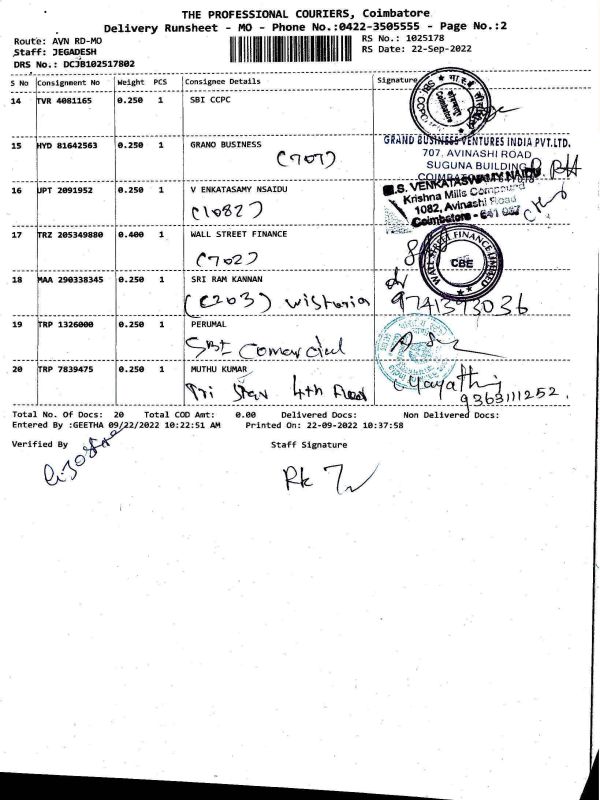 THE PROFESSIONAL COURIERS, Coimbatore
Delivery Runsheet - MO - Phone No.:0422-3505555 - Page No.:2
Route: AVN RD-MO RS No.: 1025178
Staff: JEGADESH RS Date: 22-Sep-2022
DRS No.: DCJB102517802
S No Consignment No Weight PCS Consignee Details Signature
14 TVR 4081165 0.250 1 SBI CCPC
15 HYD 81642563 0.250 1 GRANO BUSINESS
(707)
GRAND BUSINESS VENTURES INDIA PVT.LTD.
707, AVINASHI ROAD
SUGUNA BUILDING
16 UPT 2091952 0.250 1 V ENKATASAMY NSAIDU
(1082)
S. VENKATASWAMY NAIDU
Krishna Mills Compound
1082, Avinashi Road
Coimbatore - 641 037
17 TRZ 205349880 0.400 1 WALL STREET FINANCE
(702)
WALL STREET FINANCE LIMITED
CBE
18 MAA 290338345 0.250 1 SRI RAM KANNAN
(C203) Wistoria 9741393036
19 TRP 1326000 0.250 1 PERUMAL
SBI Comercial
20 TRP 7839475 0.250 1 MUTHU KUMAR
Tri Star 4th Floor
9363111252.
Total No. Of Docs: 20 Total COD Amt: 0.00 Delivered Docs: Non Delivered Docs:
Entered By :GEETHA 09/22/2022 10:22:51 AM Printed On: 22-09-2022 10:37:58
Verified By Staff Signature